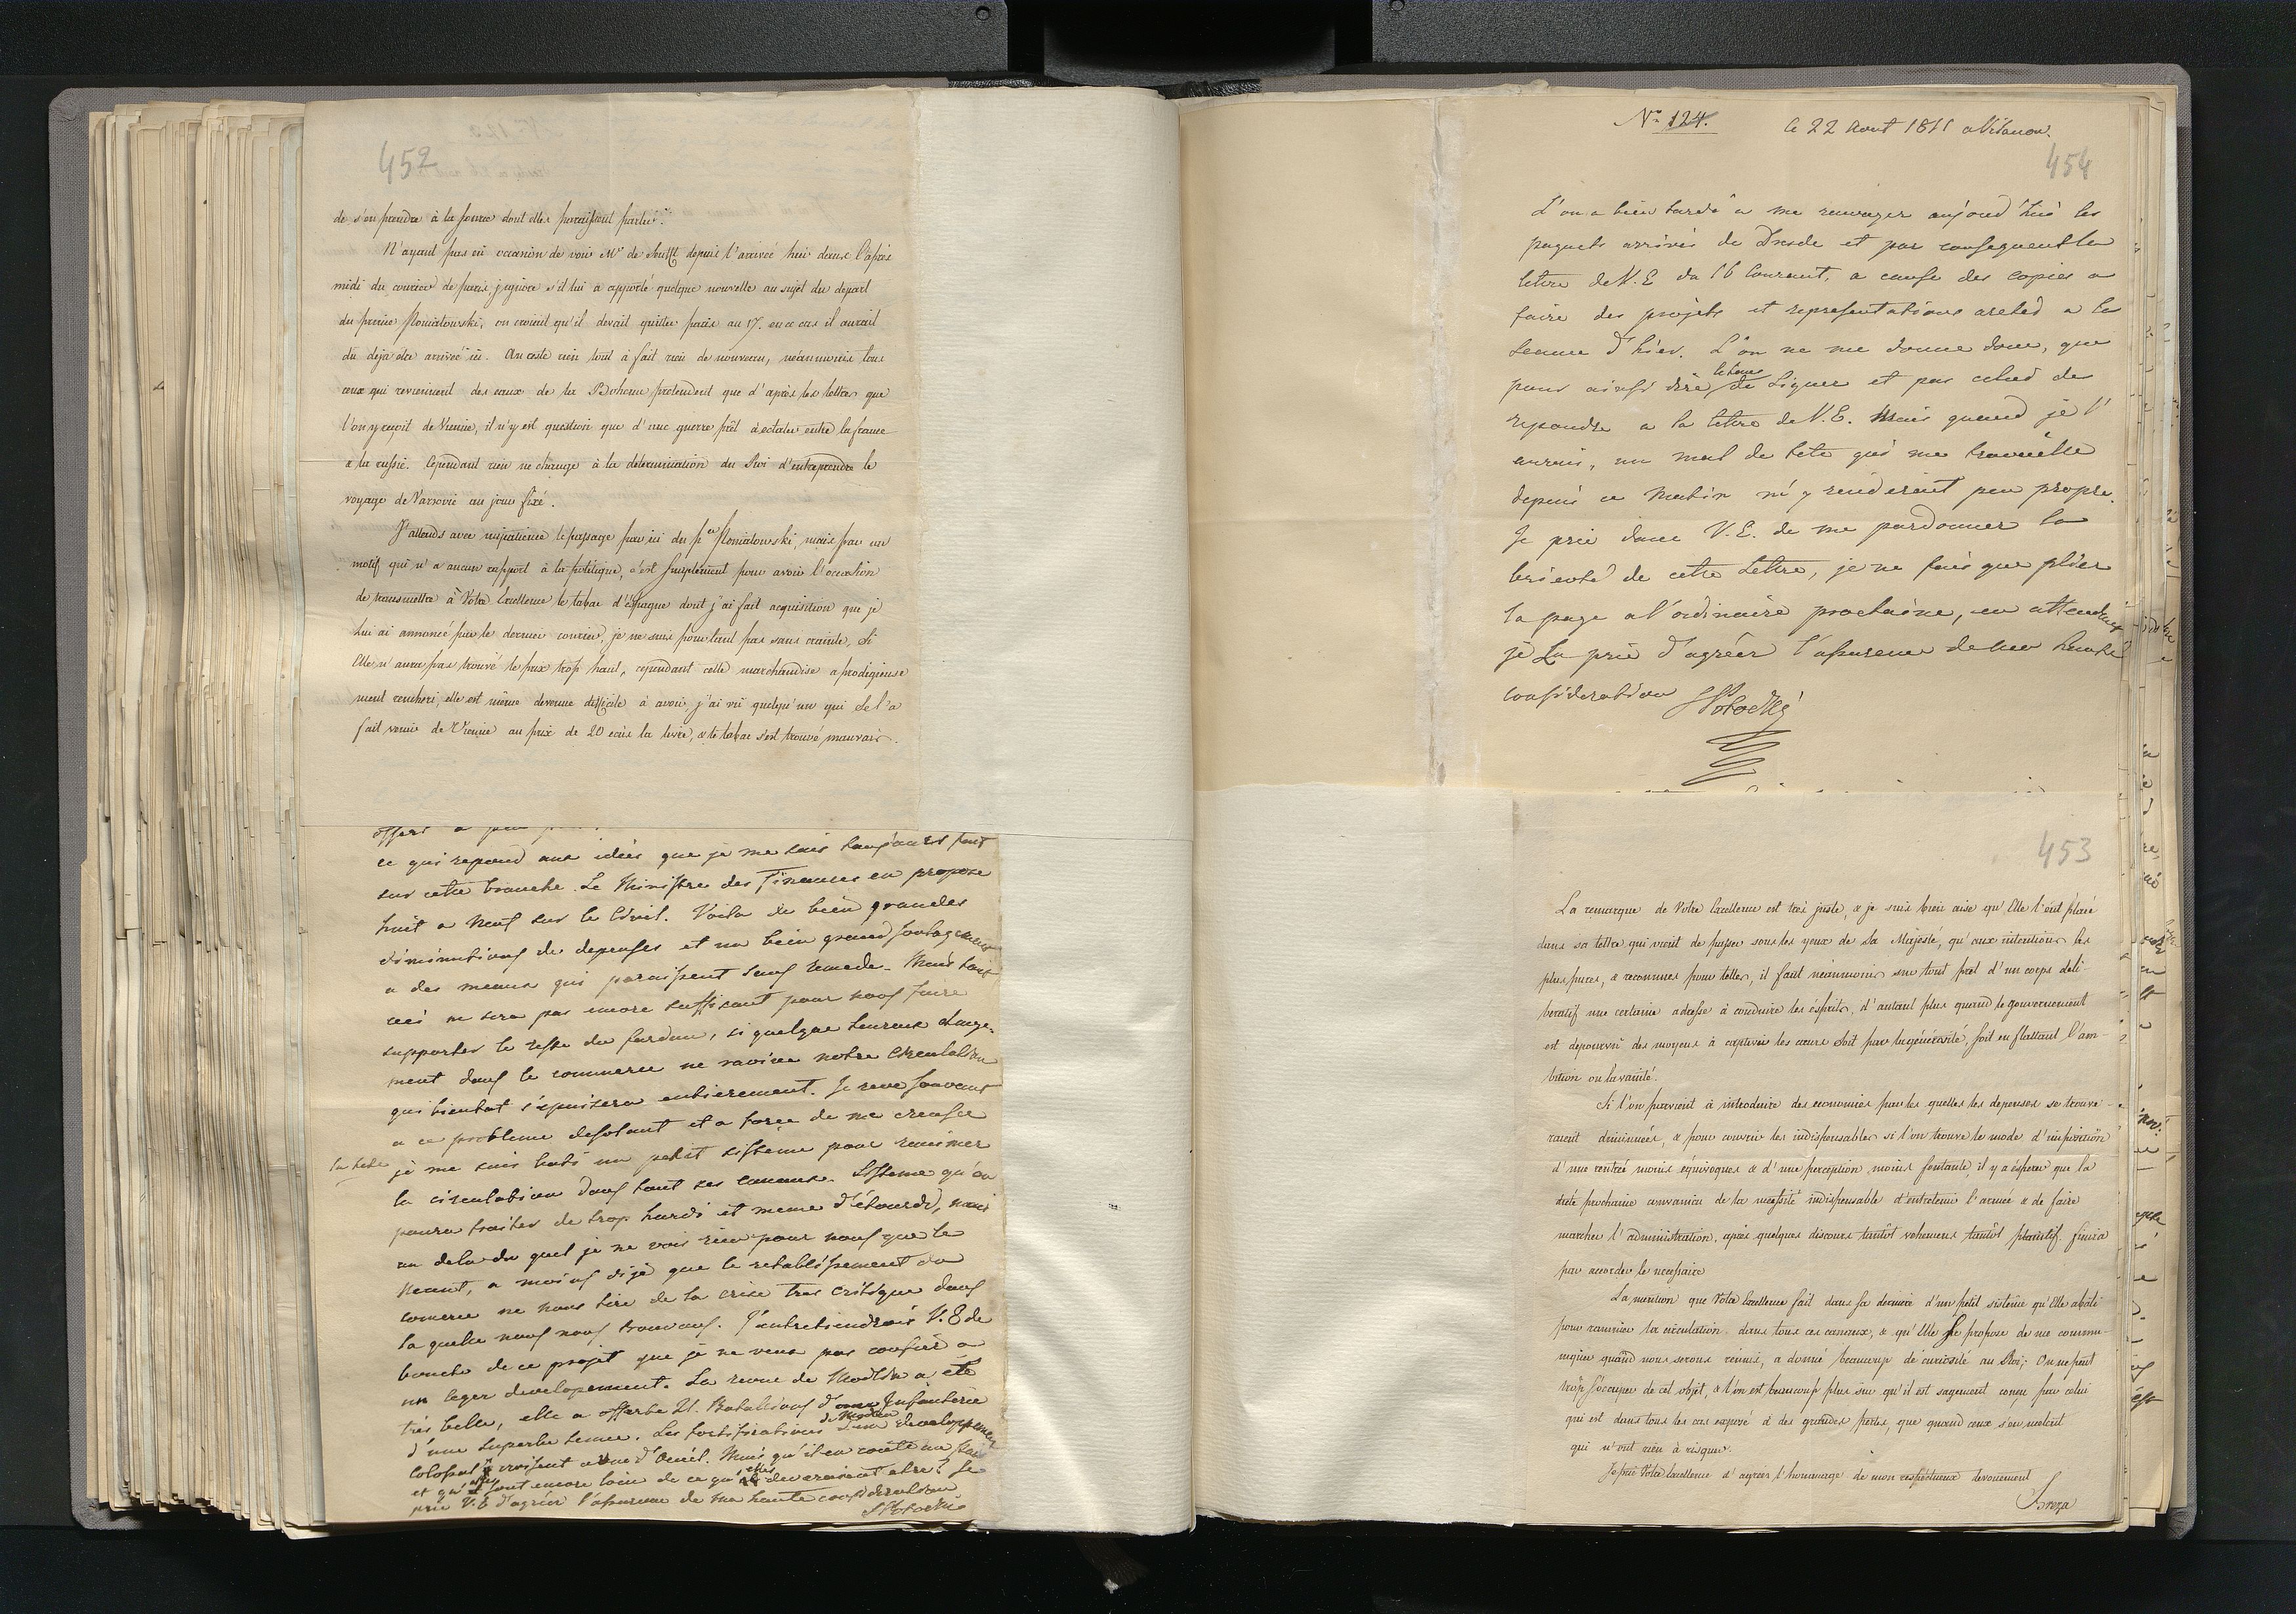 452
de s'en prendre à la source dont elles paraissent parties.
N'ayant pas eû occasion de voir Mr de Senfft depuis l'arrivée hier dans l'après
midi du courier de paris j'ignore s'il lui a apporté quelque nouvelle au sujet du depart
du prince Poniatowski, on croiait qu'il devait quitter paris au 17. en ce cas il aurait
du deja être arrivé ici. Au reste rien tout à fait rien de nouveau, néanmoins tous
ceux qui reviennent des eaux de la Boheme pretendent que d'après les lettres que
l'on y reçoit de Vienne, il n'y est question que d'une guerre prêt à eclater entre la france
& la russie. Cependant rien ne change à la determination du Roi d'entreprendre le
voyage de Varsovie au jour fixé.
J'attends avec impatience le passage par ici du pce Poniatowski, mais par un
motif qui n'a aucun rapport à la politique, c'est simplement pour avoir l'occasion
de transmettre à Votre Excellence le tabac d'espagne dont j'ai fait acquisition que je
Lui ai annoncé par le dernier courier, je ne suis pourtant pas sans crainte, si
Elle n'aura pas trouvé le prix trop haut, cependant cette marchandise a prodigieuse
ment rencheri, elle est même devenue difficile à avoir, j'ai vû quelqu'un qui de l'a
fait venir de Vienne au prix de 20 ecus la livre, & le tabac s'est trouvé mauvais.
offert a peu
ce qui repond aux idées que je me suis toujours fait
sur cette branche. Le Ministre des Finances en propose
huit a Neuf sur le Civil. Voila de bien grandes
diminutions de depenses et un bien grand soulagement
a des meaux qui paraissent sans remede. Mais tout
ceci ne sera pas encore suffisant pour nous faire
supporter le reste du fardau, si quelque heureux change-
ment dans le commerce ne ravive notre circulation
qui bientot s'epuisera entierement. Je reve souvent
a ce probleme desolant et a force de me creuser
la tete je me suis bati un petit sisteme pour ranimer
la circulation dans tout ses canaux. Sisteme qu'on
poura traiter de trop hardi et meme d'étourdi, mais
au dela du quel je ne vois rien pour nous que le
Neant, a moins dije que le retablissement du
comerce ne nous tire de la crise tres critique dans
la quelle nous nous trouvons. J'entretiendrais V. E de
bouche de ce projet que je ne veux pas confier a
un leger developement. La revue de Modlin a été
trés belle, elle a offerte 21. Batallions d'une Infanterie
d'une superbe tenue. Les fortifications de Modlin d'un developpement
Colossal croissent a vue d'Oeuil. Mais qu'il en coute
et qu'elles sont encore loin de ce qu'elles devraient etre! Je
prie V. E d'agréer l'assurance de ma haute consideration
SPotocki
No 124. le 22 Aout 1811 a Vilanow.
454
L'on a bien tardé a me renvoyer aujourd'hui les
paquets arrivés de Dresde et par consequent la
lettre de V. E du 16 Courant, a cause des copies a
faire des projets et representations aretés a la
seance d'hier. L'on ne me donne donc, que
pour ainsi dire le tems de Signer et pas celui de
repondre a la lettre de V. E. Mais quand je l'
aurais, un mal de tete qui me travaille
depuis ce Matin m'y renderoit peu propre.
Je prie donc V. E. de me pardonner la
brieveté de cette Lettre, je ne fais que plier
la page a l'ordinaire prochaine, en attendant
je La prie d'agréer l'assurance de ma haute
consideration SPotocki
453
La remarque de Votre Excellence est très juste, & je suis bien aise qu'Elle l'ait placé
dans sa lettre qui vient de passer sous les yeux de Sa Majesté, qu'aux intentions les
plus pures, & reconnues pour telles, il faut néanmoins sur tout près d'un corps deli-
beratif une certaine adresse à conduire les ésprits, d'autant plus quand le gouvernement
est depourvû des moyens à captiver les cœurs soit par la générosité, soit en flattant l'am-
bition ou la vanité.
Si l'on parvient à introduire des economies par les quelles les depenses se trouve-
raient diminuées, & pour couvrir les indispensables si l'on trouve le mode d'imposition
d'une rentrée moins equivoques & d'une perception moins, il y a ésperer que la
diete prochaine convaincu de la necessité indispensable d'entretenir l'armée & de faire
marcher l'administration, après quelques discours tantôt vehemens tantôt plaintif finira
par accorder le necessaire
La mention que Votre Excellence fait dans sa derniere d'un petit sistême qu'Elle a bâti
pour ranimer la circulation dans tous ces canaux, & qu'Elle se propose de me commu-
niquer quand nous serons réunis, a donné beaucoup de curiosité au Roi; On ne peut
trop s'occuper de cet objet, & l'on est beaucoup plus sur qu'il est sagement conçu par celui
qui est dans tous les cas exposé à des grandes pertes, que quand ceux s'en melent
qui n'ont rien à risquer.
Je prie Votre Excellence d'agréer l'hommage de mon respectueux devouement
Breza